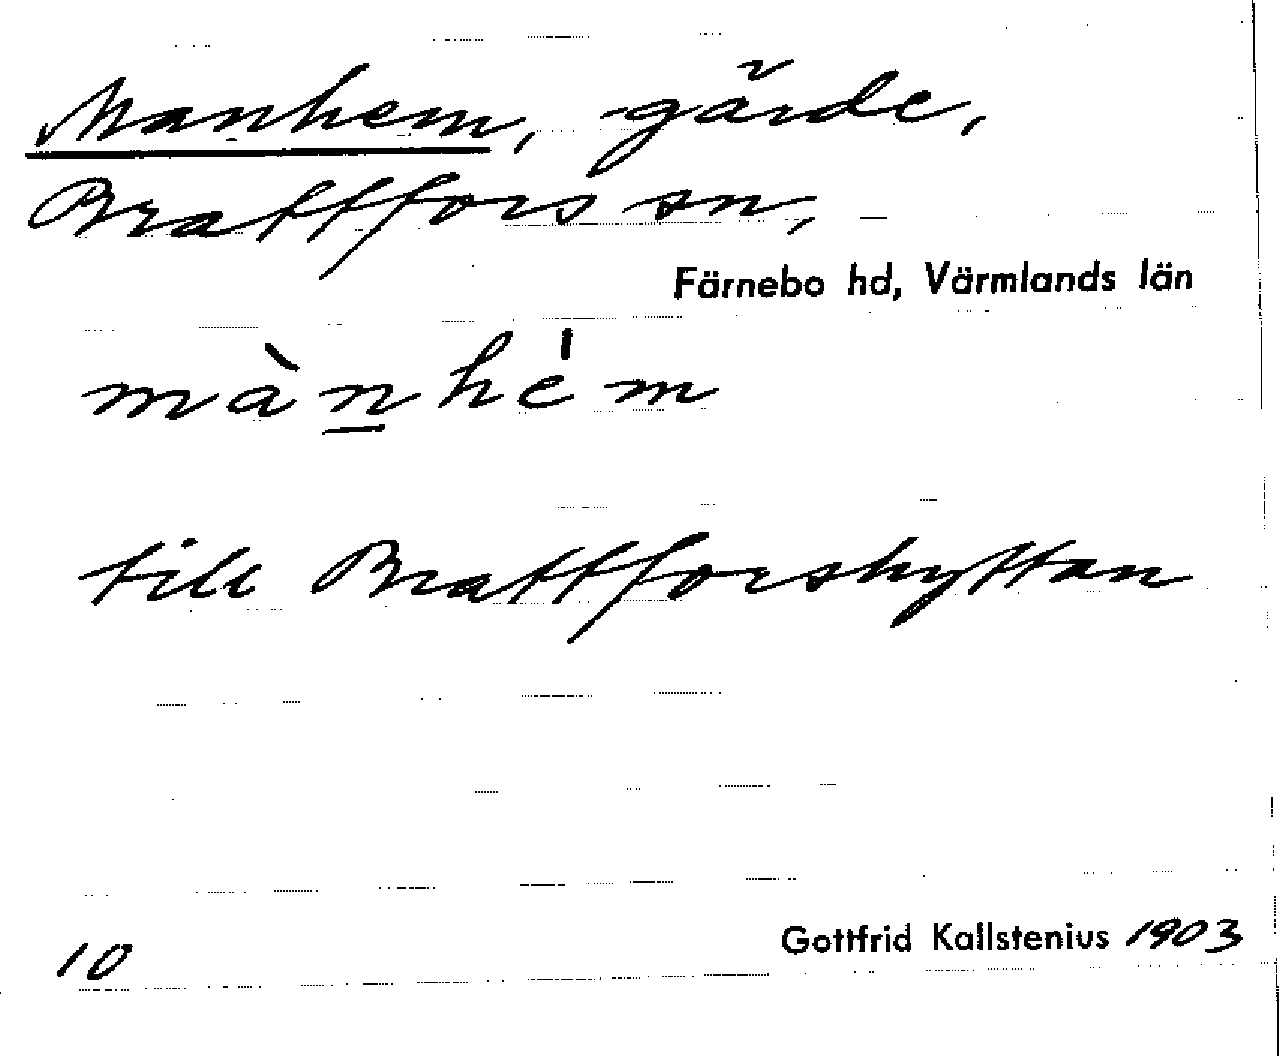 Manhem, gärde,
Brattfors sn,
Färnebo hd, Värmlands län
mànhém
till Brattforshyttan
10
Gottfrid Kallstenius 1903